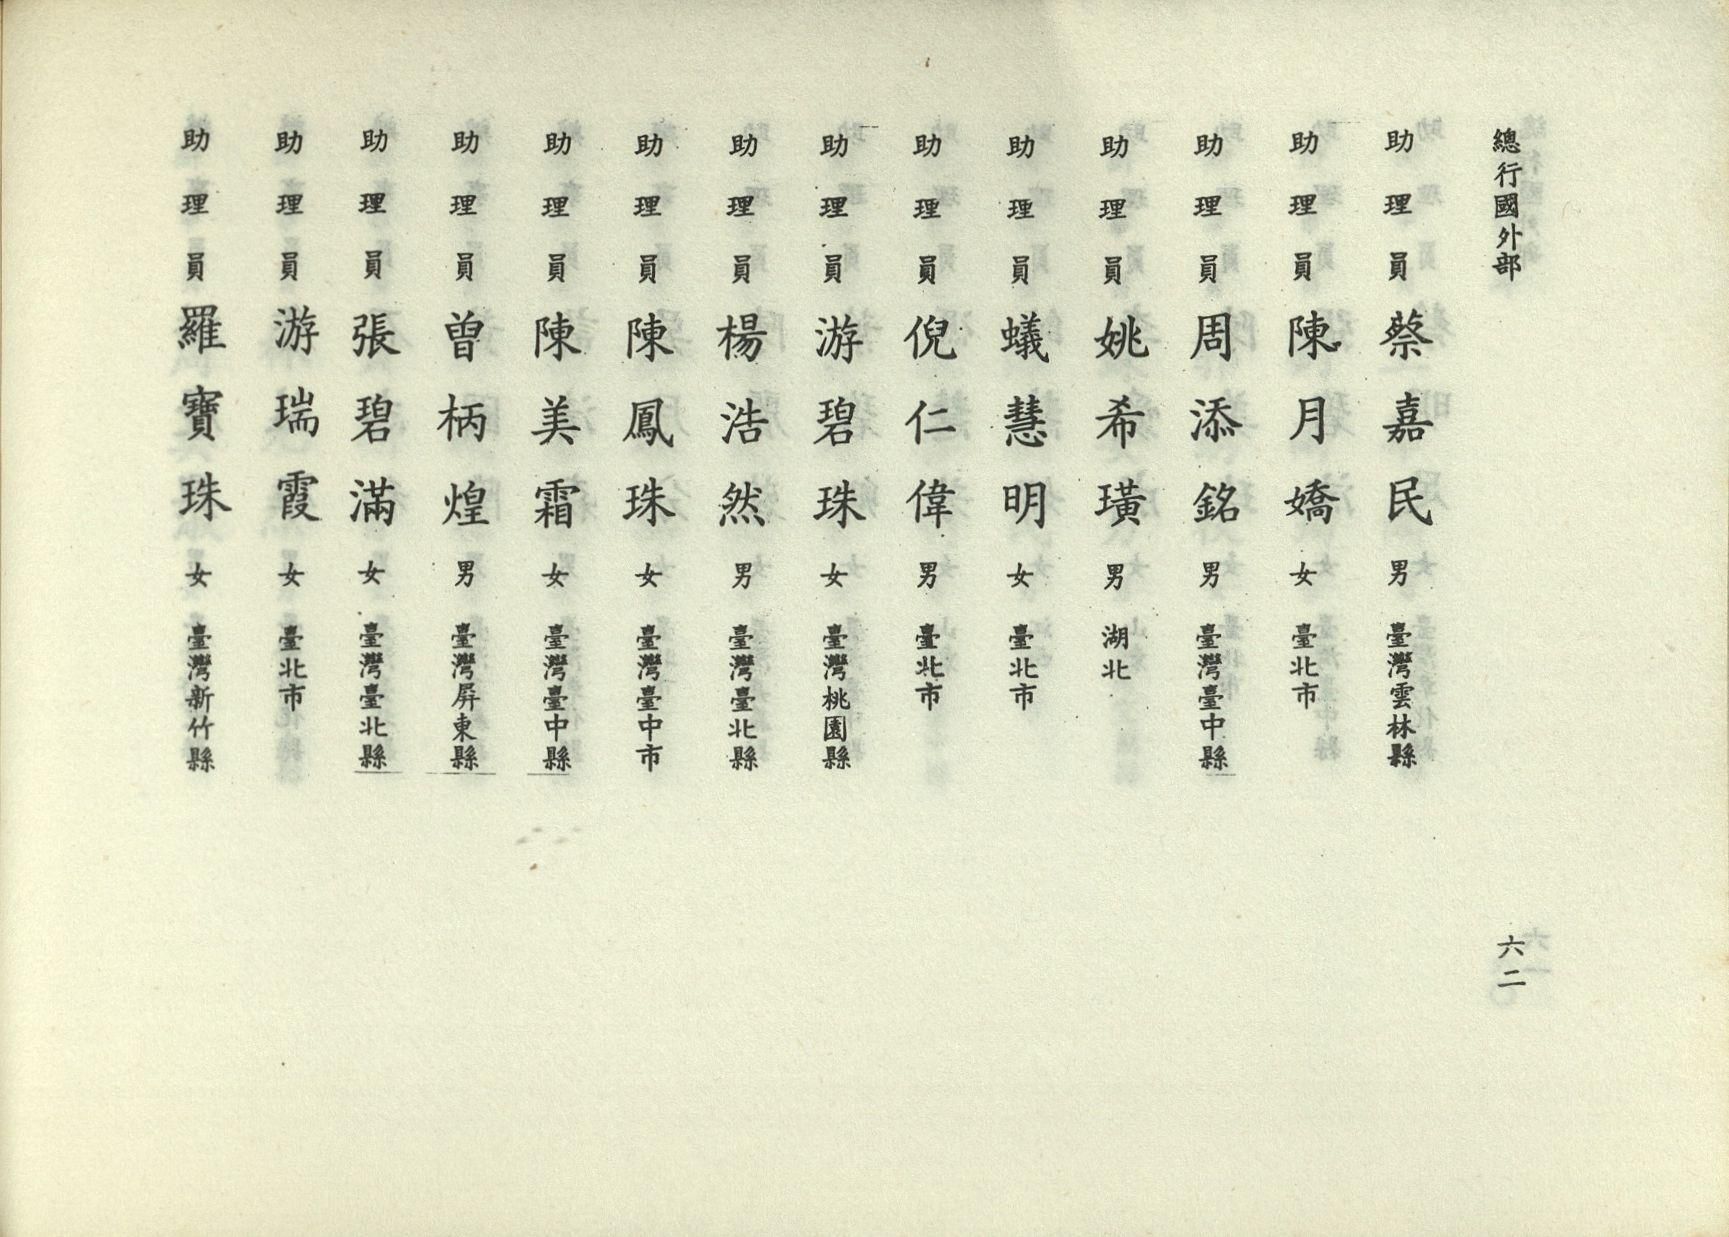 總行國外部
六二
助理員 蔡嘉民 男 臺灣雲林縣
助理員 陳月嬌 女 臺北市
助理員 周添銘 男 臺灣臺中縣
助理員 姚希璜 男 湖北
助理員 蟻慧明 女 臺北市
助理員 倪仁偉 男 臺北市
助理員 游碧珠 女 臺灣桃園縣
助理員 楊浩然 男 臺灣臺北縣
助理員 陳鳳珠 女 臺灣臺中市
助理員 陳美霜 女 臺灣臺中縣
助理員 曾柄煌 男 臺灣屏東縣
助理員 張碧滿 女 臺灣臺北縣
助理員 游瑞霞 女 臺北市
助理員 羅寶珠 女 臺灣新竹縣